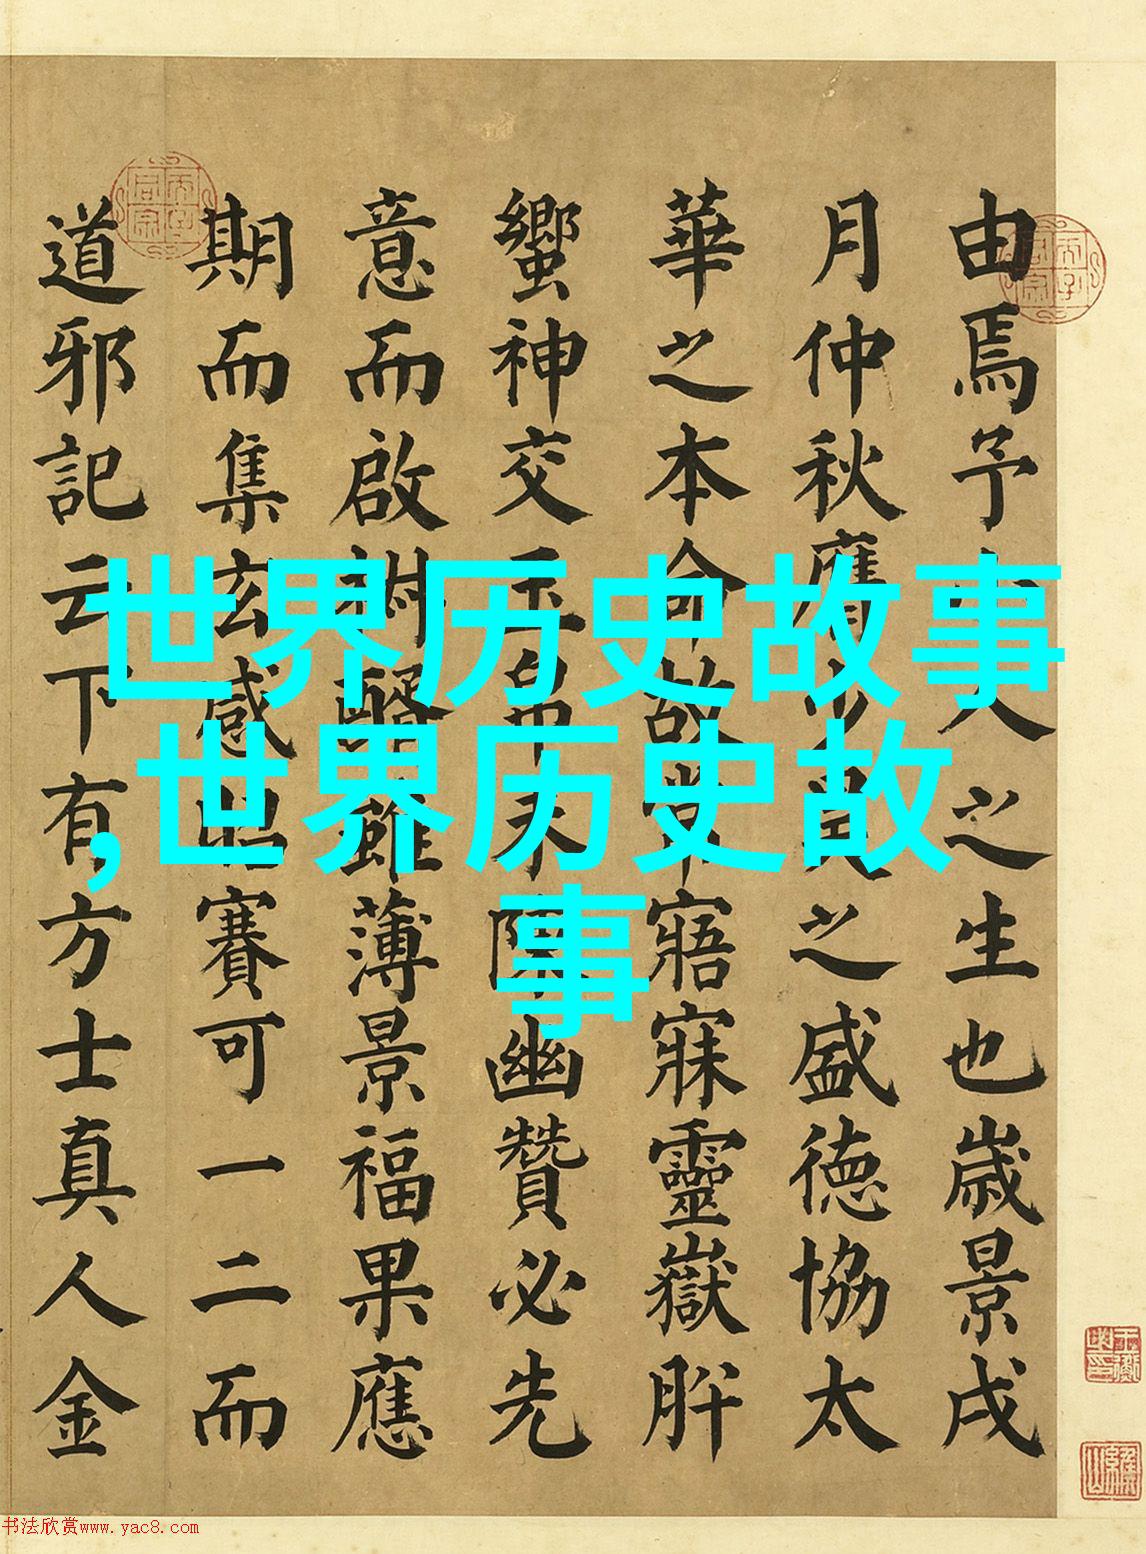 世界历史故事
,世界历史故
事
由焉予人之生也歲景戌
月仲秋膺少昊之盛德協太
華之本命故常寤寐靈嶽肸
蠁神交玉帛未陳幽贊必先
意而啟醑雖薄景福果應
期而集玄感昭賽可一二而
道邪記云下有方士真人金
书法欣赏www.yac8.com